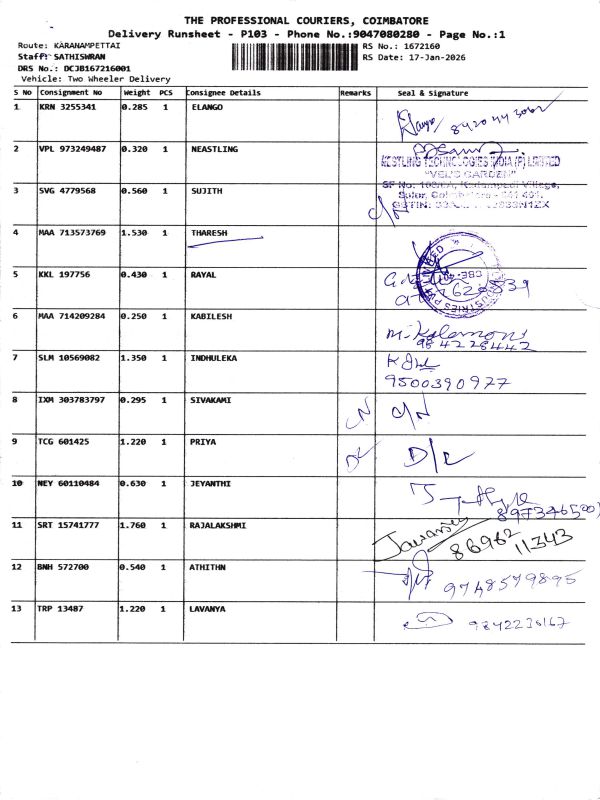 THE PROFESSIONAL COURIERS, COIMBATORE
Delivery Runsheet - P103 - Phone No.:9047080280 - Page No.:1
Route: KARANAMPETTAI RS No.: 1672160
Staff: SATHISWRAN RS Date: 17-Jan-2026
DRS No.: DCJB167216001
Vehicle: Two Wheeler Delivery
S No Consignment No Weight PCS Consignee Details Remarks Seal & Signature
1 KRN 3255341 0.285 1 ELANGO
2 VPL 973249487 0.320 1 NEASTLING
NESTLING TECHNOLOGIES INDIA (P) LIMITED
"VEL'S GARDEN"
3 SVG 4779568 0.560 1 SUJITH
C/N
4 MAA 713573769 1.530 1 THARESH
5 KKL 197756 0.430 1 RAYAL
6 MAA 714209284 0.250 1 KABILESH
984228442
7 SLM 10569082 1.350 1 INDHULEKA
9500390977
8 IXM 303783797 0.295 1 SIVAKAMI C/N
9 TCG 601425 1.220 1 PRIYA D/L D/L
10 NEY 60110484 0.630 1 JEYANTHI
11 SRT 15741777 1.760 1 RAJALAKSHMI
86962
11343
12 BNH 572700 0.540 1 ATHITHN 9748579895
13 TRP 13487 1.220 1 LAVANYA